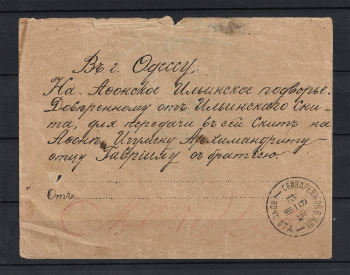 Въ г. Одессу.
На Аѳонское Ильинское подворье.
Довѣренному отъ Ильинскаго Ски-
та, для передачи въ сей Скитъ на
Аѳонѣ Игумену Архимандриту
отцу Гавріилу съ братією.
Отъ